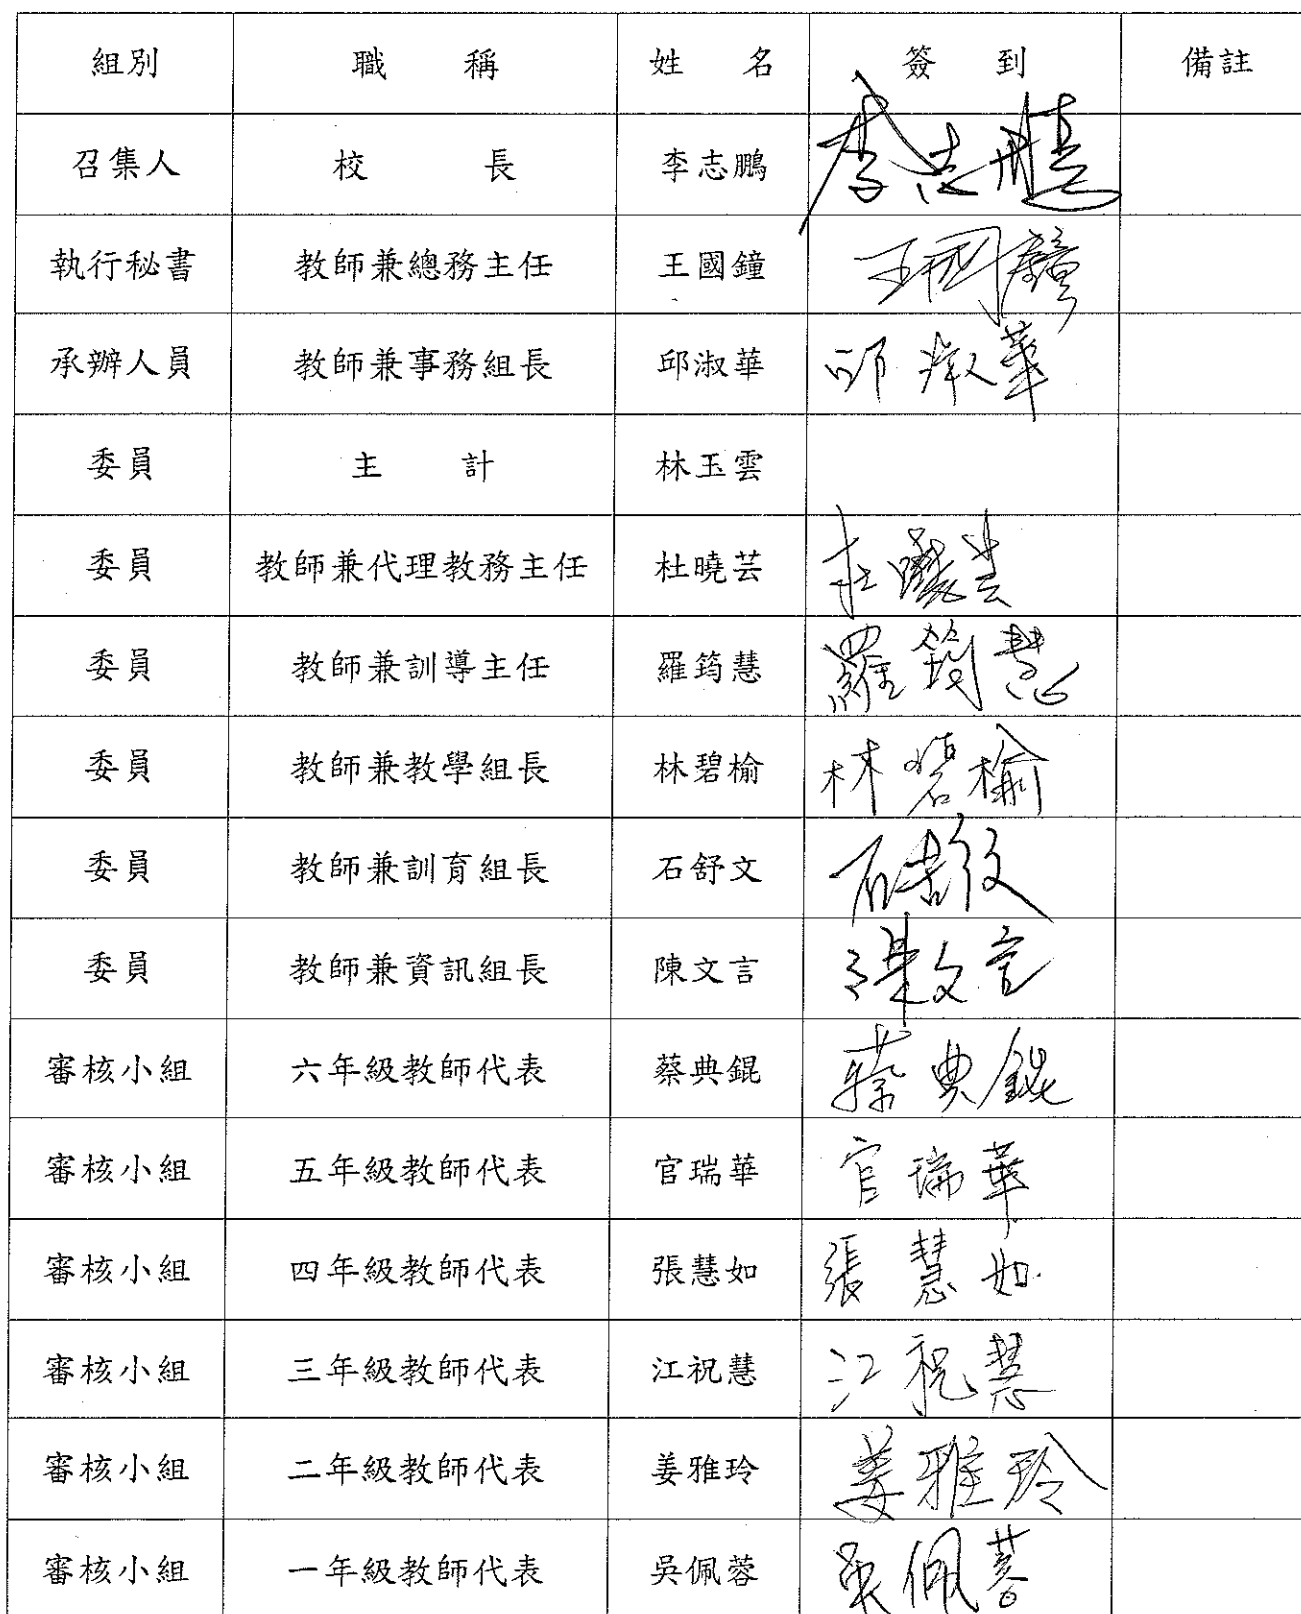 組別 職稱 姓名 簽到 備註
召集人 校長 李志鵬 李志鵬
執行秘書 教師兼總務主任 王國鐘 王國鐘
承辦人員 教師兼事務組長 邱淑華 邱淑華
委員 主計 林玉雲
委員 教師兼代理教務主任 杜曉芸 杜曉芸
委員 教師兼訓導主任 羅筠慧 羅筠慧
委員 教師兼教學組長 林碧榆 林碧榆
委員 教師兼訓育組長 石舒文 石舒文
委員 教師兼資訊組長 陳文言 陳文言
審核小組 六年級教師代表 蔡典錕 蔡典錕
審核小組 五年級教師代表 官瑞華 官瑞華
審核小組 四年級教師代表 張慧如 張慧如
審核小組 三年級教師代表 江祝慧 江祝慧
審核小組 二年級教師代表 姜雅玲 姜雅玲
審核小組 一年級教師代表 吳佩蓉 吳佩蓉